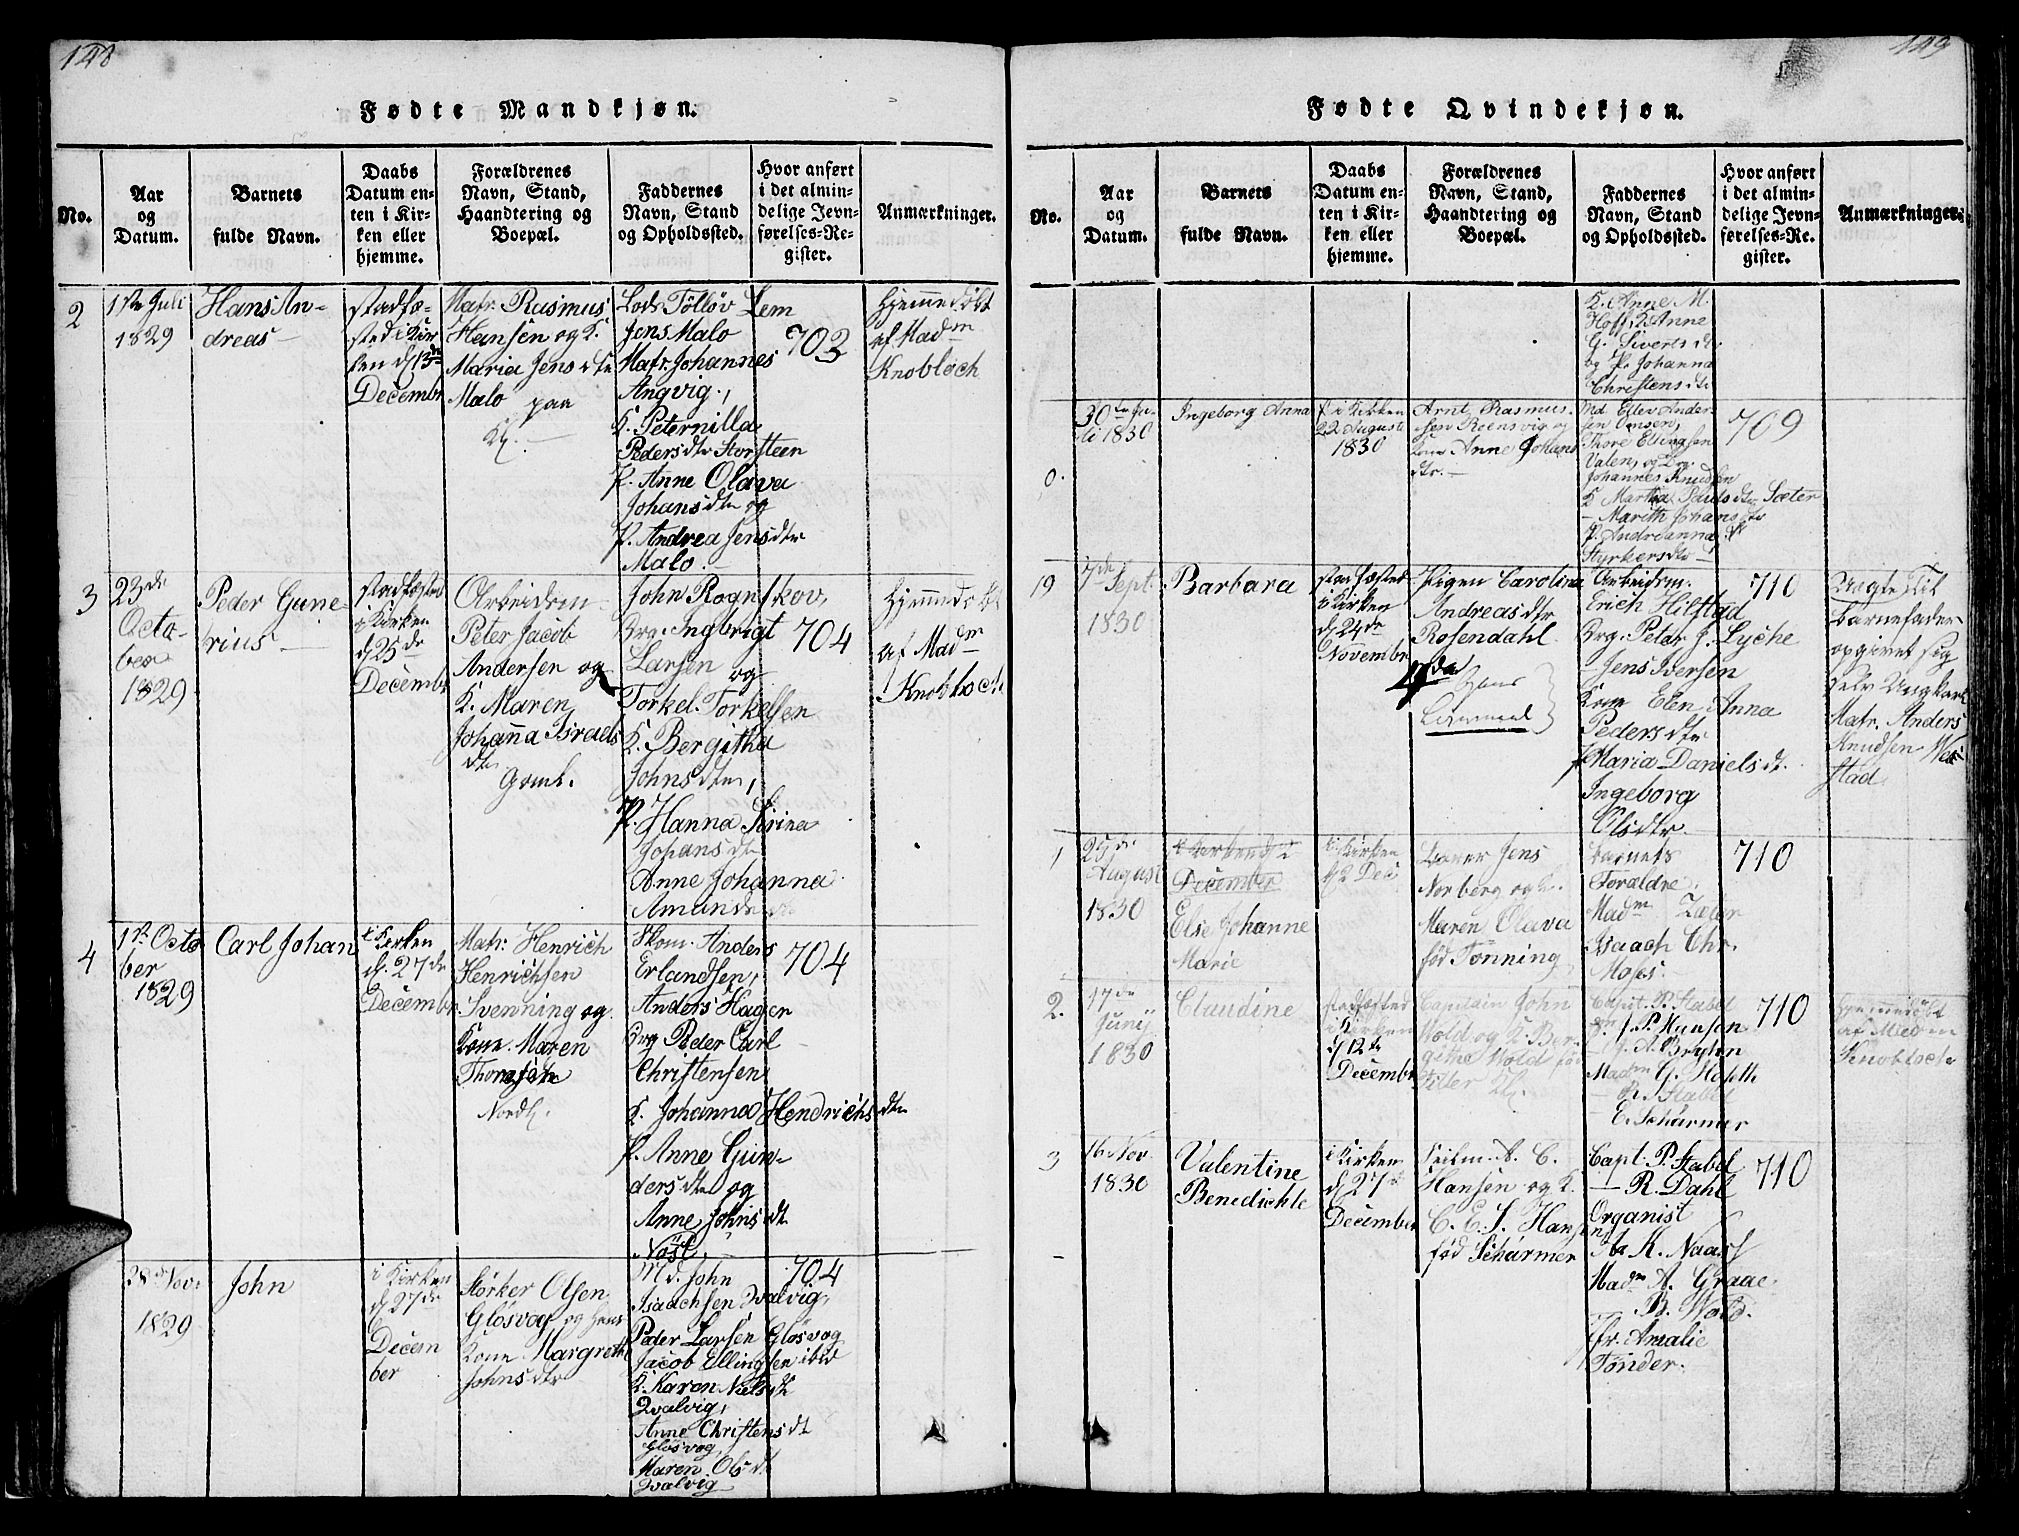 148
Fødte Mandkjøn.
No.
Aar
og
Datum.
Barnets
fulde Navn.
Daabs
Datum en-
ten i Kir-
ken eller
hjemme.
Forældrenes
Navn, Stand,
Haandtering og
Boepæl.
Faddernes
Navn, Stand
og Opholdssted.
Hvor anført
i det almin-
delige Jevn-
førelses-Re-
gister.
Anmærkninger.
2
1ste Juli
1829
Hans An-
dreas
stadfæ-
sted i Kir
ken d 13de
Decembr
Matr. Rasmus
Hansen og K.
Maria Jensdtr
Malo paa
Lods Tolløv Lem
Jens Malo
Matr. Johannes
Angvig,
K. Peternilla
Pedersdtr Storsteen
P. Anne Olava
Johansdtr og
P. Andrea Jensdtr
Malo
703
hjemmedøbt
af Madm
Knobloch
3
23de
Octo-
ber
1829
Peder Gune-
rius
stadfæsted
i Kirken
d 25de
Decembr
Arbeidsm
Peter Jacob
Andersen og
K. Maren
Johanna Israels
dtr
Goml.
John Rognskov,
Brg. Ingbrigt
Larsen og
Torkel Torkelsen
K. Bergitha
Johnsdtr,
P. Hanna Sirina
Johansdtr
Anne Johanna
Amundsdtr
704
hjemmedøbt
af Madm
Knobloch
4
1ste Octo
ber
1829
Carl Johan
i Kirken
d. 27de
Decembr
Matr. Henrich
Henrichsen
Svenning og
Kone Maren
Thomsdtr
Nordl.
Skom. Anders
Erlandsen,
Anders Hagen
Brg Peder Carl
Christensen
K. Johanna Hendrichsdtr
P. Anne Gun-
dersdtr og
Anne Johnsdt
Nøsl.
704
28de Nov.
1829
John
i Kirken
d 27de
Decem
ber
Størker Olsen
Gløsvog og hans
Kone Margreth
Johnsdtr
Md. John
Isaachsen Qvalvig,
Peder Larsen Gløsvog
Jacob Ellingsen ibid
K. Karen Nielsdt
Qvalvig,
Anne Christensdt
Gløsvog
Maren Olsdt
Qvalvig
704
149
Fødte Qvindekjøn.
No.
Aar
og
Datum.
Barnets
fulde Navn.
Daabs
Datum en-
ten i Kir-
ken eller
hjemme.
Forældrenes
Navn, Stand,
Haandtering og
Boepæl.
Faddernes
Navn, Stand
og Opholdssted.
Hvor anført
i det almin-
delige Jevn-
førelses-Re-
gister.
Anmærkninger.
K. Anne M.
Hoff, K Anne
G. Sivertsdtr
og P. Johanna
Christensdtr
0.
30te Ju-
li 1830
Ingeborg Anna
i Kirken
22 August
1830
Arnt Rasmus-
sen Roensvig og
Kone Anne Johans
dtr.
Md. Ellev Ander-
sen Omsen,
Thore Ellingsen
Valen, og Drg.
Johannes Knudsen
K Martha Paulsdtr Sæter
- Marith Johansdtr
P. Andreanna
Styrkersdtr
709
19
7de Sept.
1830
Barbara
stadfæsted
i Kirken
d 24de
Novembr
Pigen Carolina
Andreasdtr
Rosendahl
hans
Leiermaal
Arbeidsm.
Erich Hilstad
Brg. Petar J. Lyche
Jens Iversen
Kone Elen Anna
Pedersdtr
P Maria Danielsdt.
Ingeborg
Olsdtr
710
Uægte Til
barnefader
opgivet sig
selv Ungkarl
Matr. Anders
Knudsen Wee
stad
1
25de
August
1830
December
Else Johanne
Marie
i Kirken
d 2 Dec
Jens
Norberg og K.
Maren Olava
fød Tønning
Barnets
Forældre,
Madm
Isaach Chr.
Moses
710
2.
17de
Junij
1830
Claudine
stadfæstet
i Kirken
d 12te
Decembr
Capitain John
Wold og K Ber-
githe Wold fød
Capit. P. Stabel
J. P. Hansen
A. Bryhn
Madm G. Hoseth
- R. Stabel
E. Schärmer
710
Hjemmedøbt
af Madm
Knobloch
3
16 Nov.
1830
Valentine
Benedichte
i Kirken
d 27de
December
A. C.
Hansen og K.
C. E. S. Hansen
fød Schärmer
Capt. P. Stabel
- R. Dahl
Organist
A. K. Naas
Madm A. Graae
- B. Wold
fr. Amalie
Tønder.
710